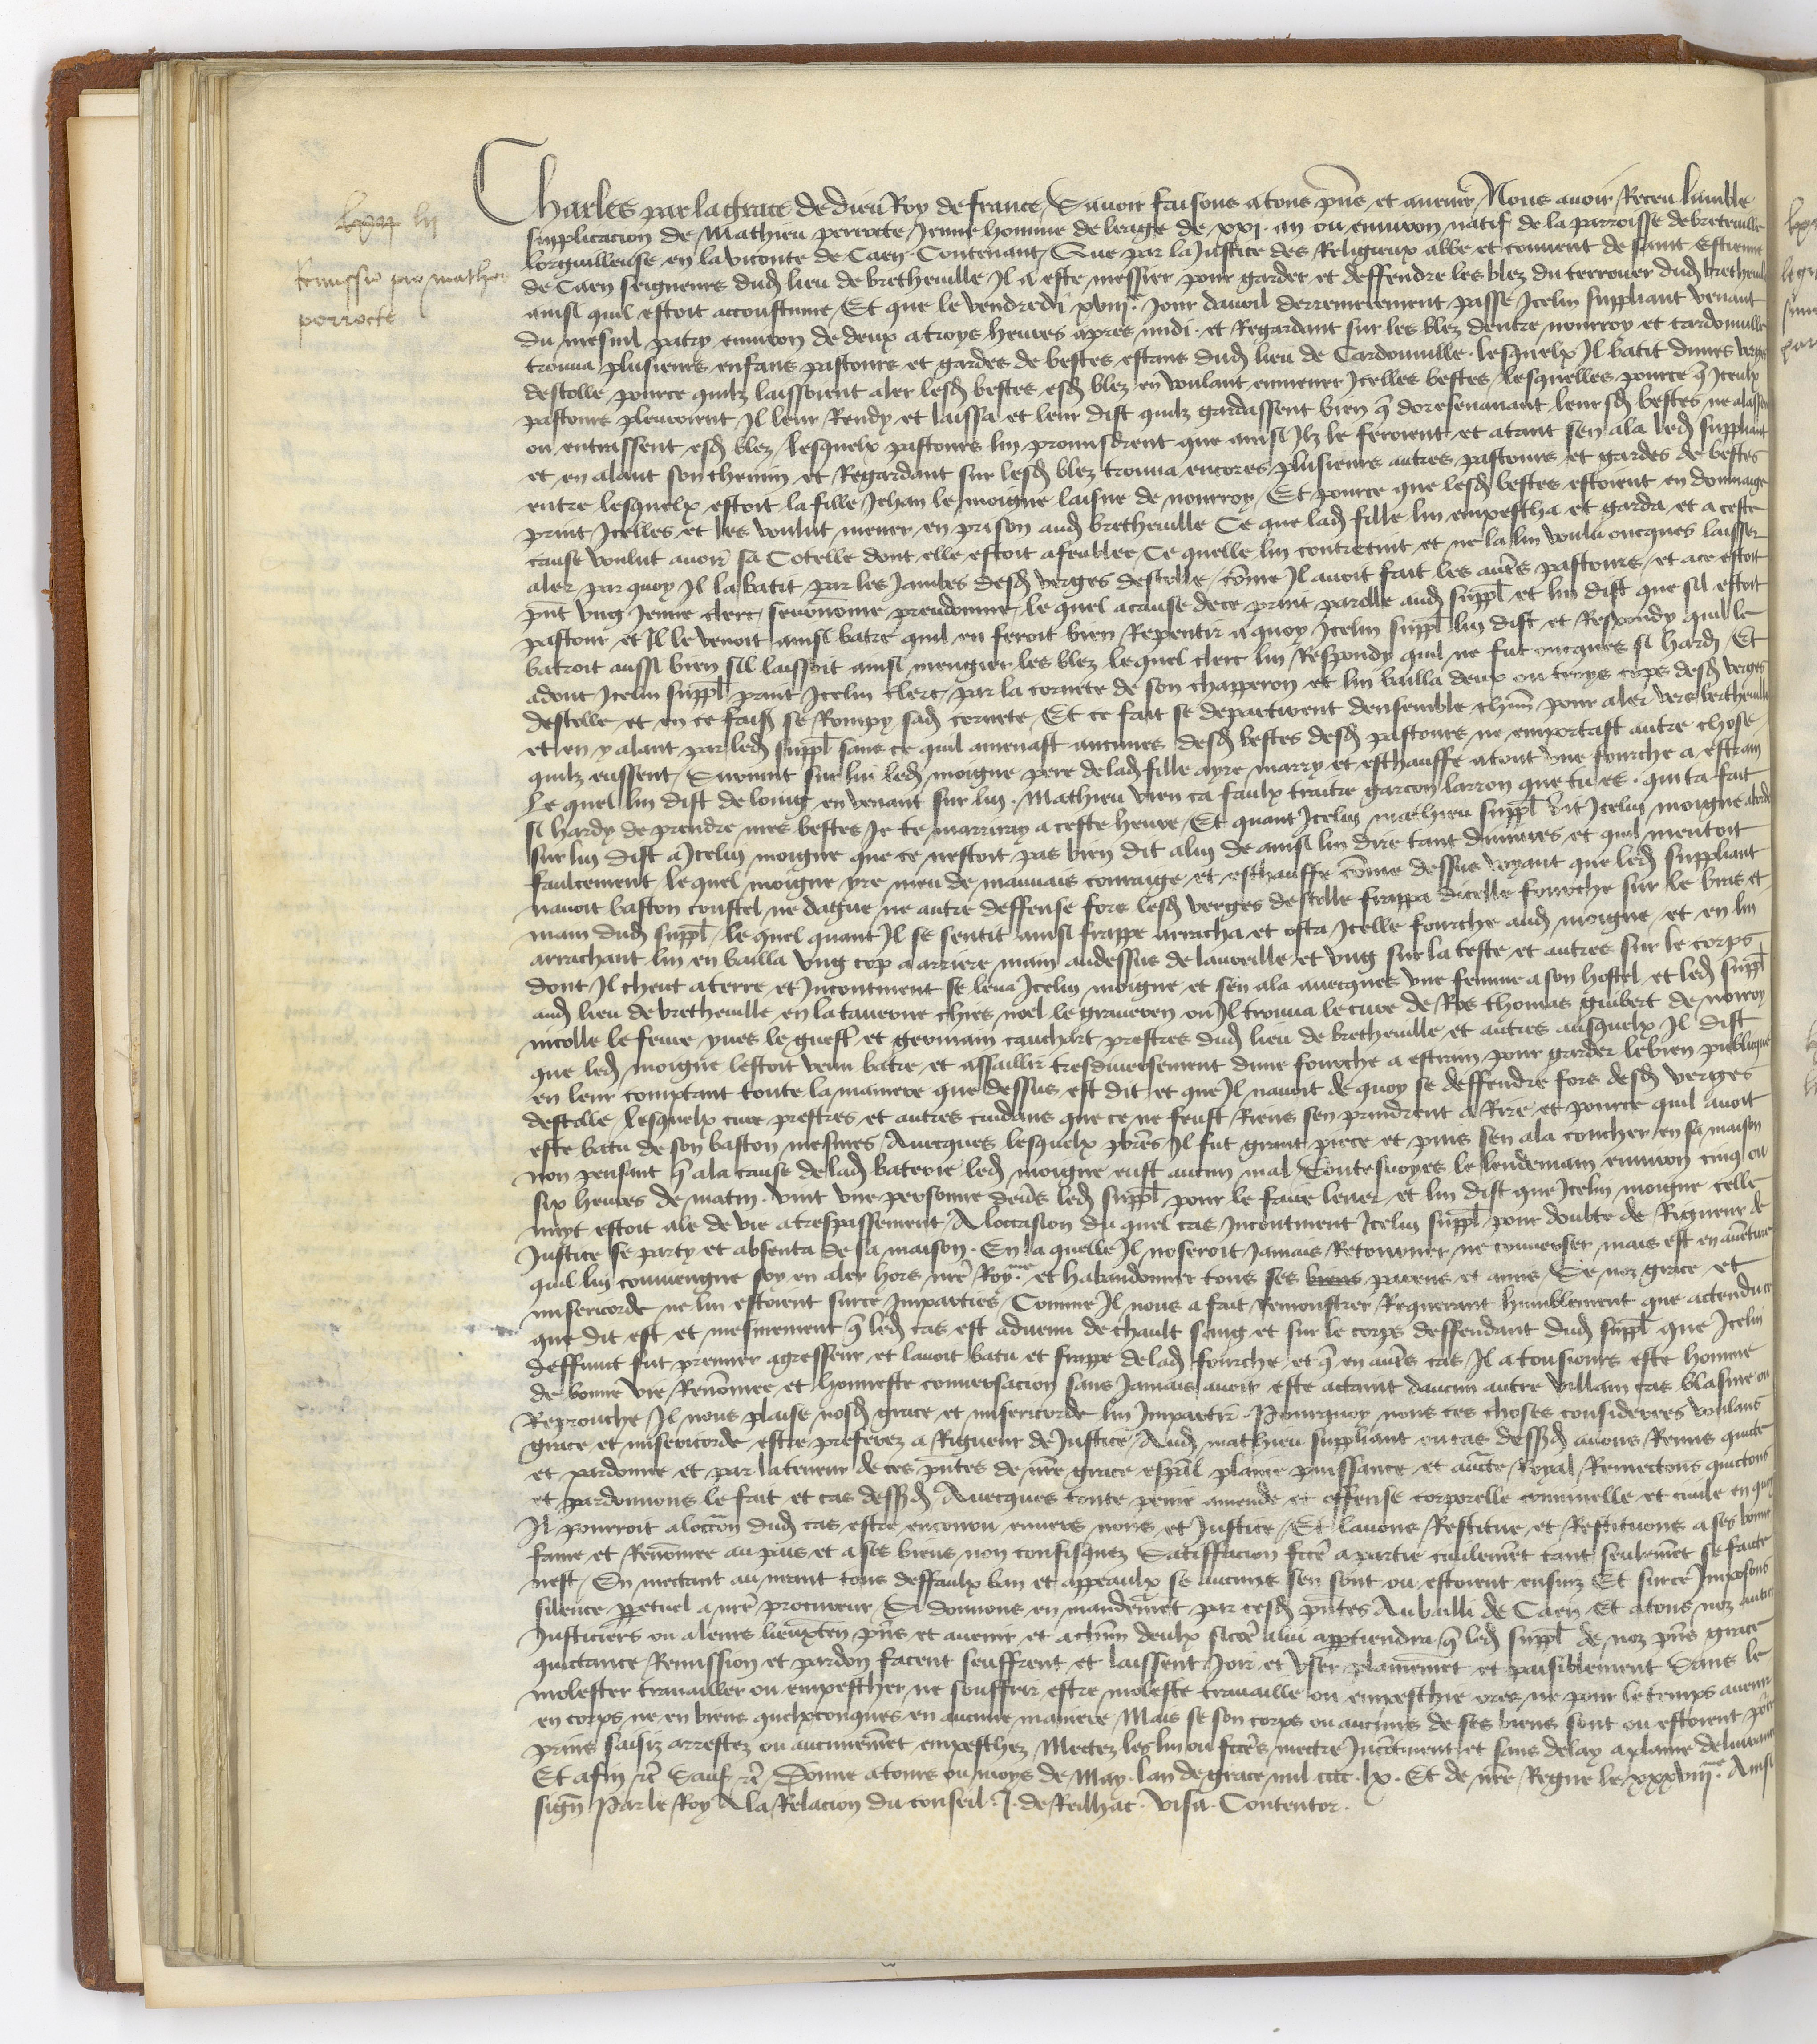 lii
Remissio pro matheo
perrocte
Charles par la grace de dieu Roy de france, Savoir faisons a tous pñs et avenir Nous avoir Receu lumble
supplicacion de Mathieu perrocte Jeune homme de leage de xxi an ou environ natif de la parroisse de breteville
lorguilleuse en la viconte de Caen Contenant, Que par la Justice des Religieux abbe et convent de saint Estienne
de Caen seigneurs dud lieu de bretheville Il a este messier pour garder et deffendre les blez du terrouer dud bretheville
ainsi quil estoit acoustume Et que le vendredi xviije Jour davril derrenierement passe Icelui suppliant venant
du mesnil patry environ de deux a troys heures apres midi et Regardant sur les blez dentre nourroy et cardonville
trouva plusieurs enfans pastours et gardes de bestes estans dud lieu de Cardonville lesquelx Il batit dunes verges
destolle pource quilz laissoient aler lesd bestes esd blez en voulant emmener Icelles bestes lesquelles pource q Iceulx
pastours pleuroient Il leur Rendy et laissa et leur dist quilz gardassent bien q doresenavant leursd bestes ne alassent
ou entrassent esd blez lesquelx pastours lui promisdrent que ainsi Ilz le feroient et atant sen ala led suppliant
et en alant son chemin et Regardant sur lesd blez trouva encores plusieurs autres pastours et gardes de bestes
entre lesquelx estoit la fille Jehan le moigne laisne de nourroy Et pource que lesd bestes estoient en dommaige
print Icelles et les voulut mener en prison aud bretheville Ce que lad fille lui empescha et garda et a ceste
cause voulut avoir sa Cotelle dont elle estoit afeublee Ce quelle lui contretint et ne la lui voulu oncques laisser
aler par quoy Il la batit par les Jambes desd verges destolle cõme Il avoit fait les aut̃s pastours et ace estoit
pñt ung Jeune clerc seurnõme preudomme lequel a cause de ce print parolle aud suppl et lui dist que sil estoit
pastour et Il le venoit ainsi batre quil en feroit bien Repentir a quoy Icelui suppl lui dist et Respondy quil le
batroit aussi bien sil laissoit ainsi mengier les blez lequel clerc lui Respondy quil ne fut oncques si hardy Et
adonc Icelui suppl print Icelui clerc par la cornete de son chapperon et lui bailla deux ou troys cops desd verges
destolle et en ce fais se Rompy sad cornete Et ce fait se departirent densemble chũn pour aler vers bretheville
et en y alant par led suppl sans ce quil amenast aucunes desd bestes desd pastours ne emportast autre chose
quilz eussent Survint sur lui led moigne pere de lad fille ayre marry et eschauffe a tout une fourche a estrain
Le quel lui dist de loing en venant sur lui Mathieu vien ca faulx traitre garcon larron que tu es qui ta fait
si hardy de prendre mes bestes Je te marriray a ceste heure Et quant Icelui mathieu suppl vit Icelui moigne
sur lui dist a Icelui moigne que ce nestoit pas bien dit a lui de ainsi lui dire tant dinjures et quil mentoit
faulcement lequel moigne yre meu de mauvais couraige et eschauffe cõme dessus voyant que led suppliant
navoit baston coustel ne dague ne autre deffense fors lesd verges destolle frappa dicelle fourche sur le bras et
main dud suppl lequel quant Il se sentit ainsi frappe arracha et osta Icelle fourche aud moigne et en lui
arrachant lui en bailla ung cop a arriere main audessus de laureille et ung sur la teste et autres sur le corps
dont Il cheut a terre et Incontinent se leva Icelui moigne et sen ala avecques une femme a son hostel et led suppl
aud lieu de bretheville en la taverne chies noel le graveren ou Il trouva le cure de Ros thomas guibert de noirroy
nicolle lefevre yves le guest et germain cauchart prestres dud lieu de bretheville et autres ausquelx Il dist
que led moigne lestoit venu batre et assaillir tresdiversement dune fourche a estrain pour garder le bien publicque
en leur comptant toute la maniere que dessus est dit et que Il navoit de quoy se deffendre fors desd verges
destolle Lesquelx cure prestres et autres cuidans que ce ne feust Riens sen prindrent a Rire et pource quil avoit
este batu de son baston mesmes Avecques lesquelx pb̃res Il fut grant piece et puis sen ala coucher en sa maison
non pensant q a la cause de lad baterie led moigne eust aucun mal Toutesvoyes le lendemain environ cinq ou
six heures de matin vint une personne dev̄s led suppl pour le faire lever et lui dist que Icelui moigne celle
nuyt estoit ale de vie a trespassement A loccasion du quel cas Incontinent Icelui suppl pour doubte de Rigueur de
Justice se party et absenta de sa maison En la quelle Il noseroit Jamais Retourner ne converser mais est en avẽture
quil lui conviengne soy en aler hors nr̃e Roy.me et habandonner tous ses biens parens et amis Se noz grace et
misericorde ne lui estoient surce Imparties Comme Il nous a fait Remonstrer Requerant humblement que actendu ce
que dit est et mesmement q led cas est advenu de chault sang et sur le corps deffendant dud suppl que Icelui
deffunct fut premier agresseur et lavoit batu et frappe de lad fourche et q en aut̃s cas Il a tousiours este homme
de bonne vie Renõmee et honneste conversacion sans Jamais avoir este actaint daucun autre villain cas blasme ou
Reprouche Il nous plaise nosd grace et misericorde lui Impartir Pourquoy nous ces choses considerees voulans
grace et misericorde estre preferez a Rigueur de Justice Aud mathieu suppliant ou cas dessd avons Remis quicte
et pardonne et par la teneur de ces pñtes de nr̃e grace esp̃al plaine puissance et auc̃te Royal Remectons quictons
et pardonnons le fait et cas dessd Avecques toute peine amende et offense corporelle criminelle et civile en quoy
Il pourroit a loccõn dud cas estre encouru envers nous et Justice Et lavons Restitue et Restituons a ses bonne
fame et Renõmee au pais et a ses biens non confisquez Satisffacion fc̃e a partie civilemẽt tant seulemẽt se faicte
nest En mectant au neant tous deffaulx ban et appeaulx se aucuns sen sont ou estoient ensuiz Et surce Imposons
silence ppetuel a nr̃e procureur Si donnons en mandemẽt par cesd pñtes Au bailli de Caen Et a tous noz autres
Justiciers ou a leurs lieuxten pñs et avenir et a chũn deulx sicõe a lui apptiendra q led suppl de noz pñs grace
quictance Remission et pardon facent seuffrent et laissent Joir et user plainemẽt et paisiblement Sans le
molester travailler ou empescher ne souffrir estre moleste travaille ou empeschie ores ne pour le temps avenir
en corps ne en biens quelxconques en aucune maniere Mais se son corps ou aucuns de ses biens sont ou estoient pour ce
prins saisiz arrestez ou aucunemẽt empeschez Mectez les lui ou fc̃es mectre Incõtinent et sans delay a plaine delivrance
Et afin &c̃ Sauf &c̃ Donne a tours ou moys de May lan de grace mil cccc lx Et de nr̃e Regne le xxxviije Ainsi
sign̄ Par le Roy A la Relacion du conseil J. de Reilhac Visa Contentor